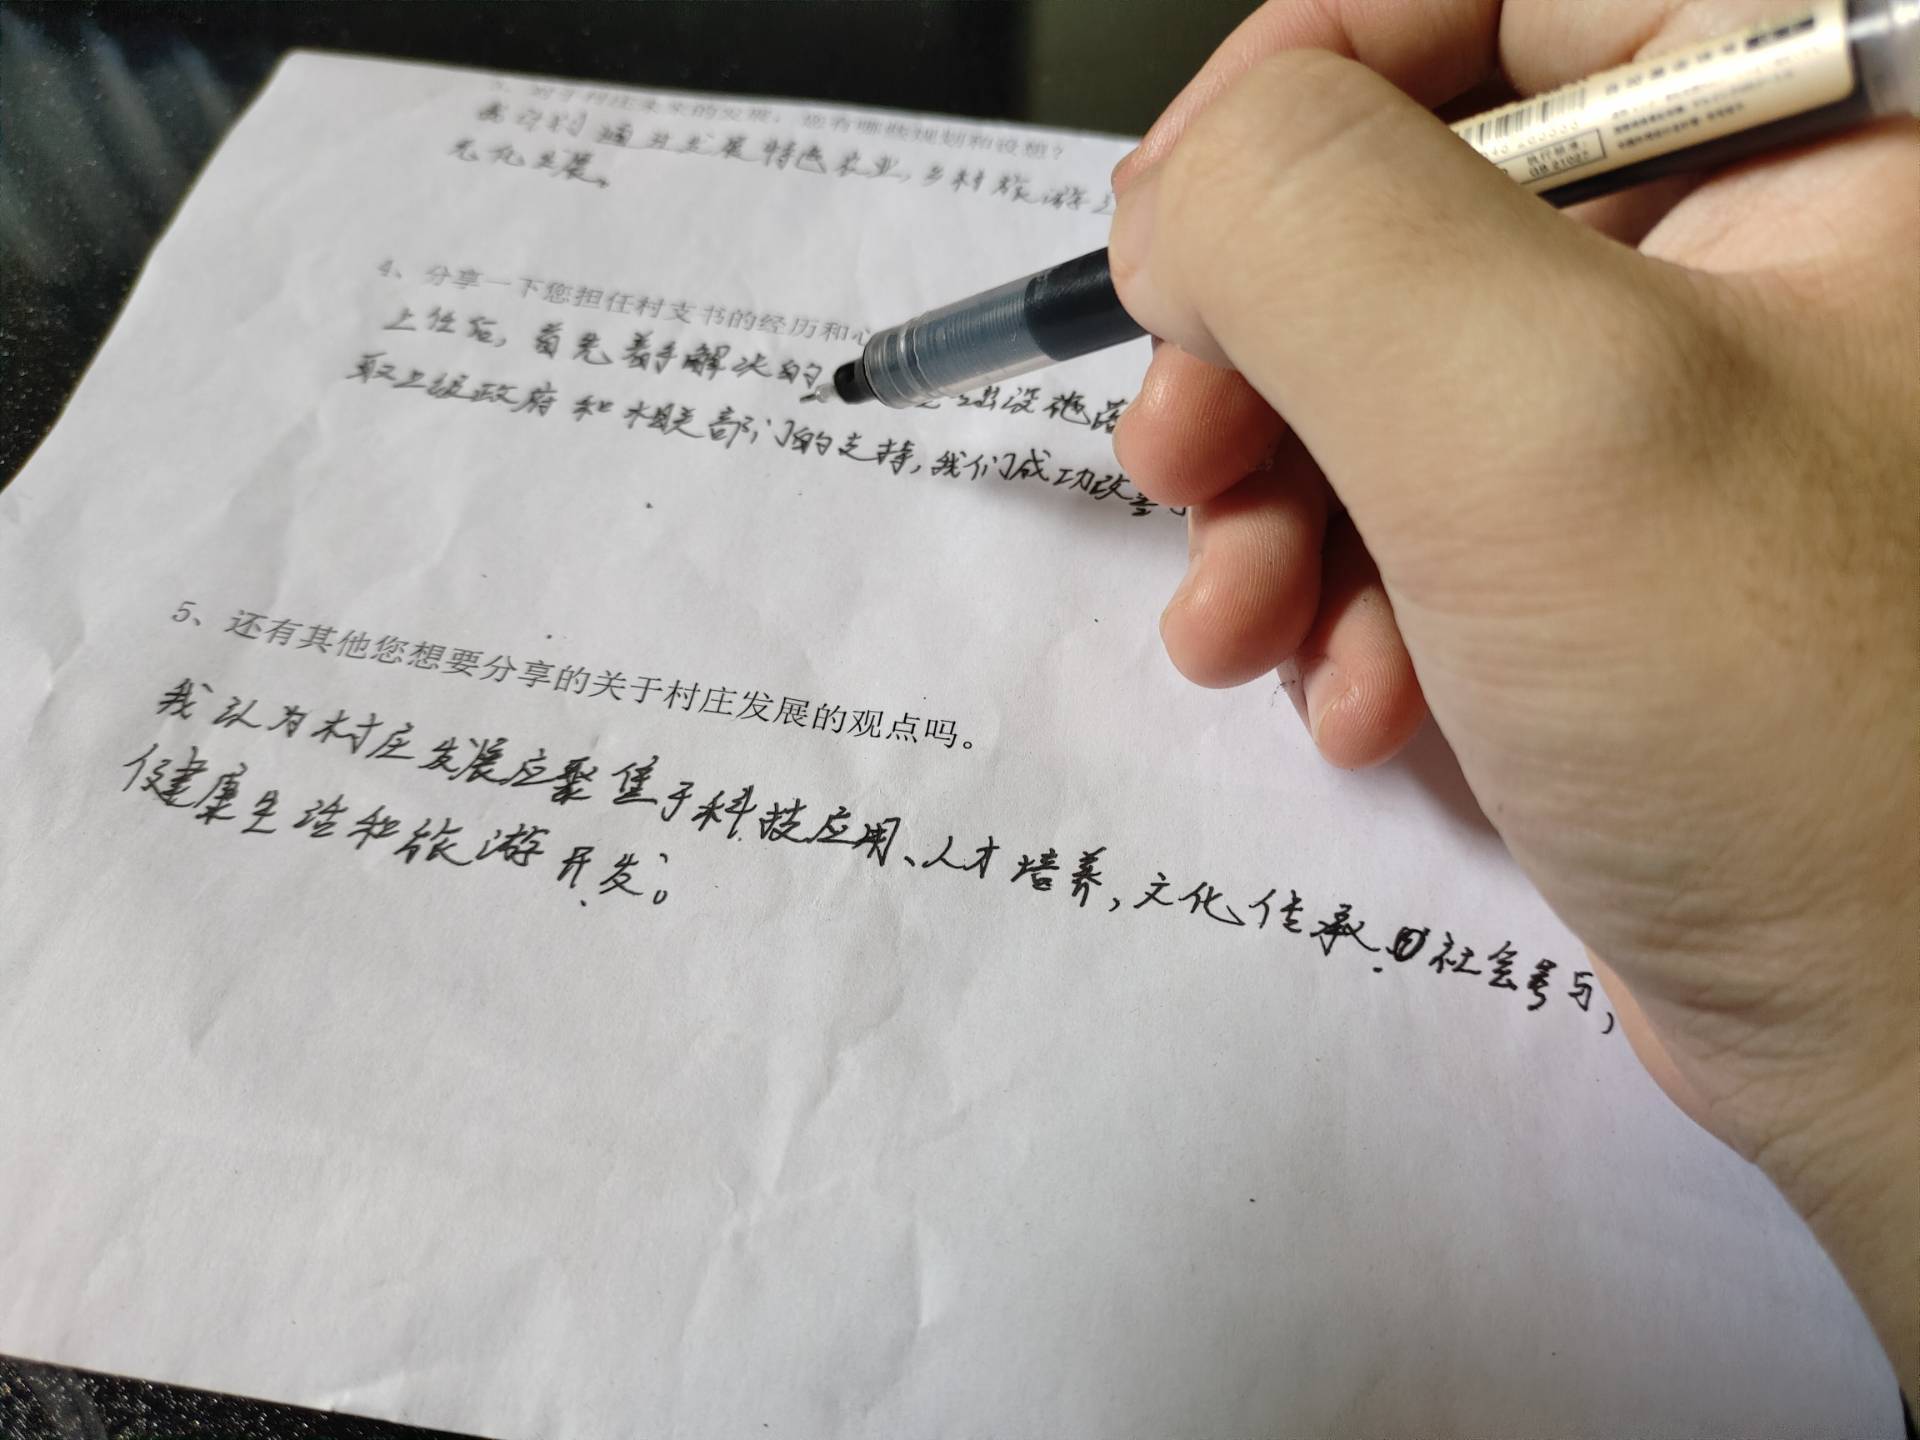 3、对于村庄未来的发展，您有哪些规划和设想？
我计划通过发展特色农业，乡村旅游
元化发展。
4、分享一下您担任村支书的经历和心
上任后，首先着手解决的 础设施落
取上级政府和相关部门的支持，我们成功改善了
5、还有其他您想要分享的关于村庄发展的观点吗。
我认为村庄发展应聚焦于科技应用、人才培养，文化传承 社会参与，
健康生活和旅游开发。